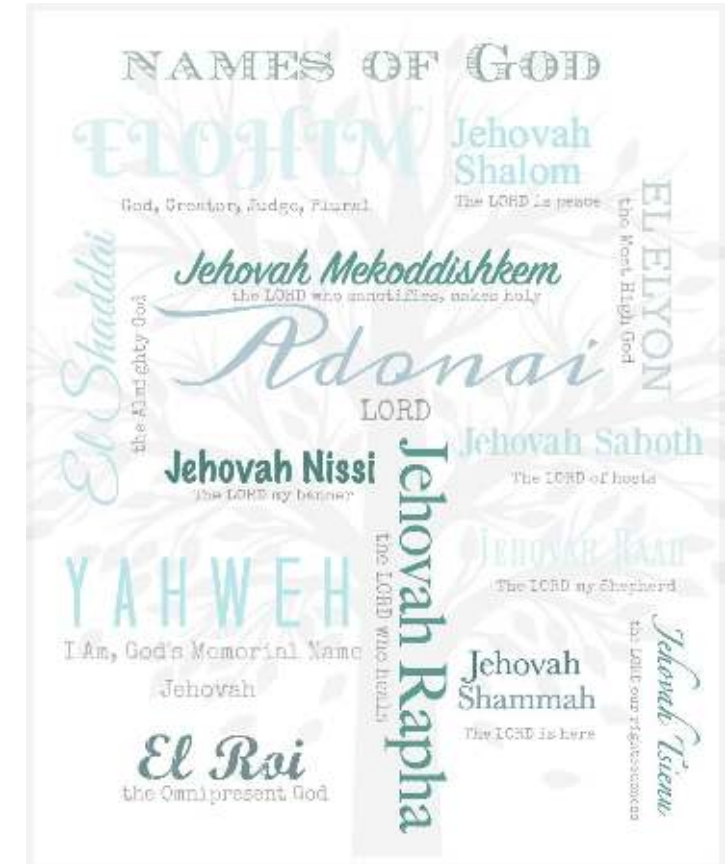 NAMES OF GOD
ELOHIM
God, Creator, Judge, Plural
Jehovah
Shalom
The LORD is peace
EL ELYON
the Most High God
El Shaddai
the Almighty God
Jehovah Mekoddishkem
the LORD who sanctifies, makes holy
Adonai
LORD
Jehovah Nissi
The LORD my banner
Jehovah Rapha
the LORD who heals
Jehovah Saboth
The LORD of hosts
JEHOVAH RAAH
The LORD my Shepherd
YAHWEH
I Am, God's Memorial Name
Jehovah
Jehovah
Shammah
The LORD is here
Jehovah Tsienu
the LORD our righteousness
El Roi
the Omnipresent God